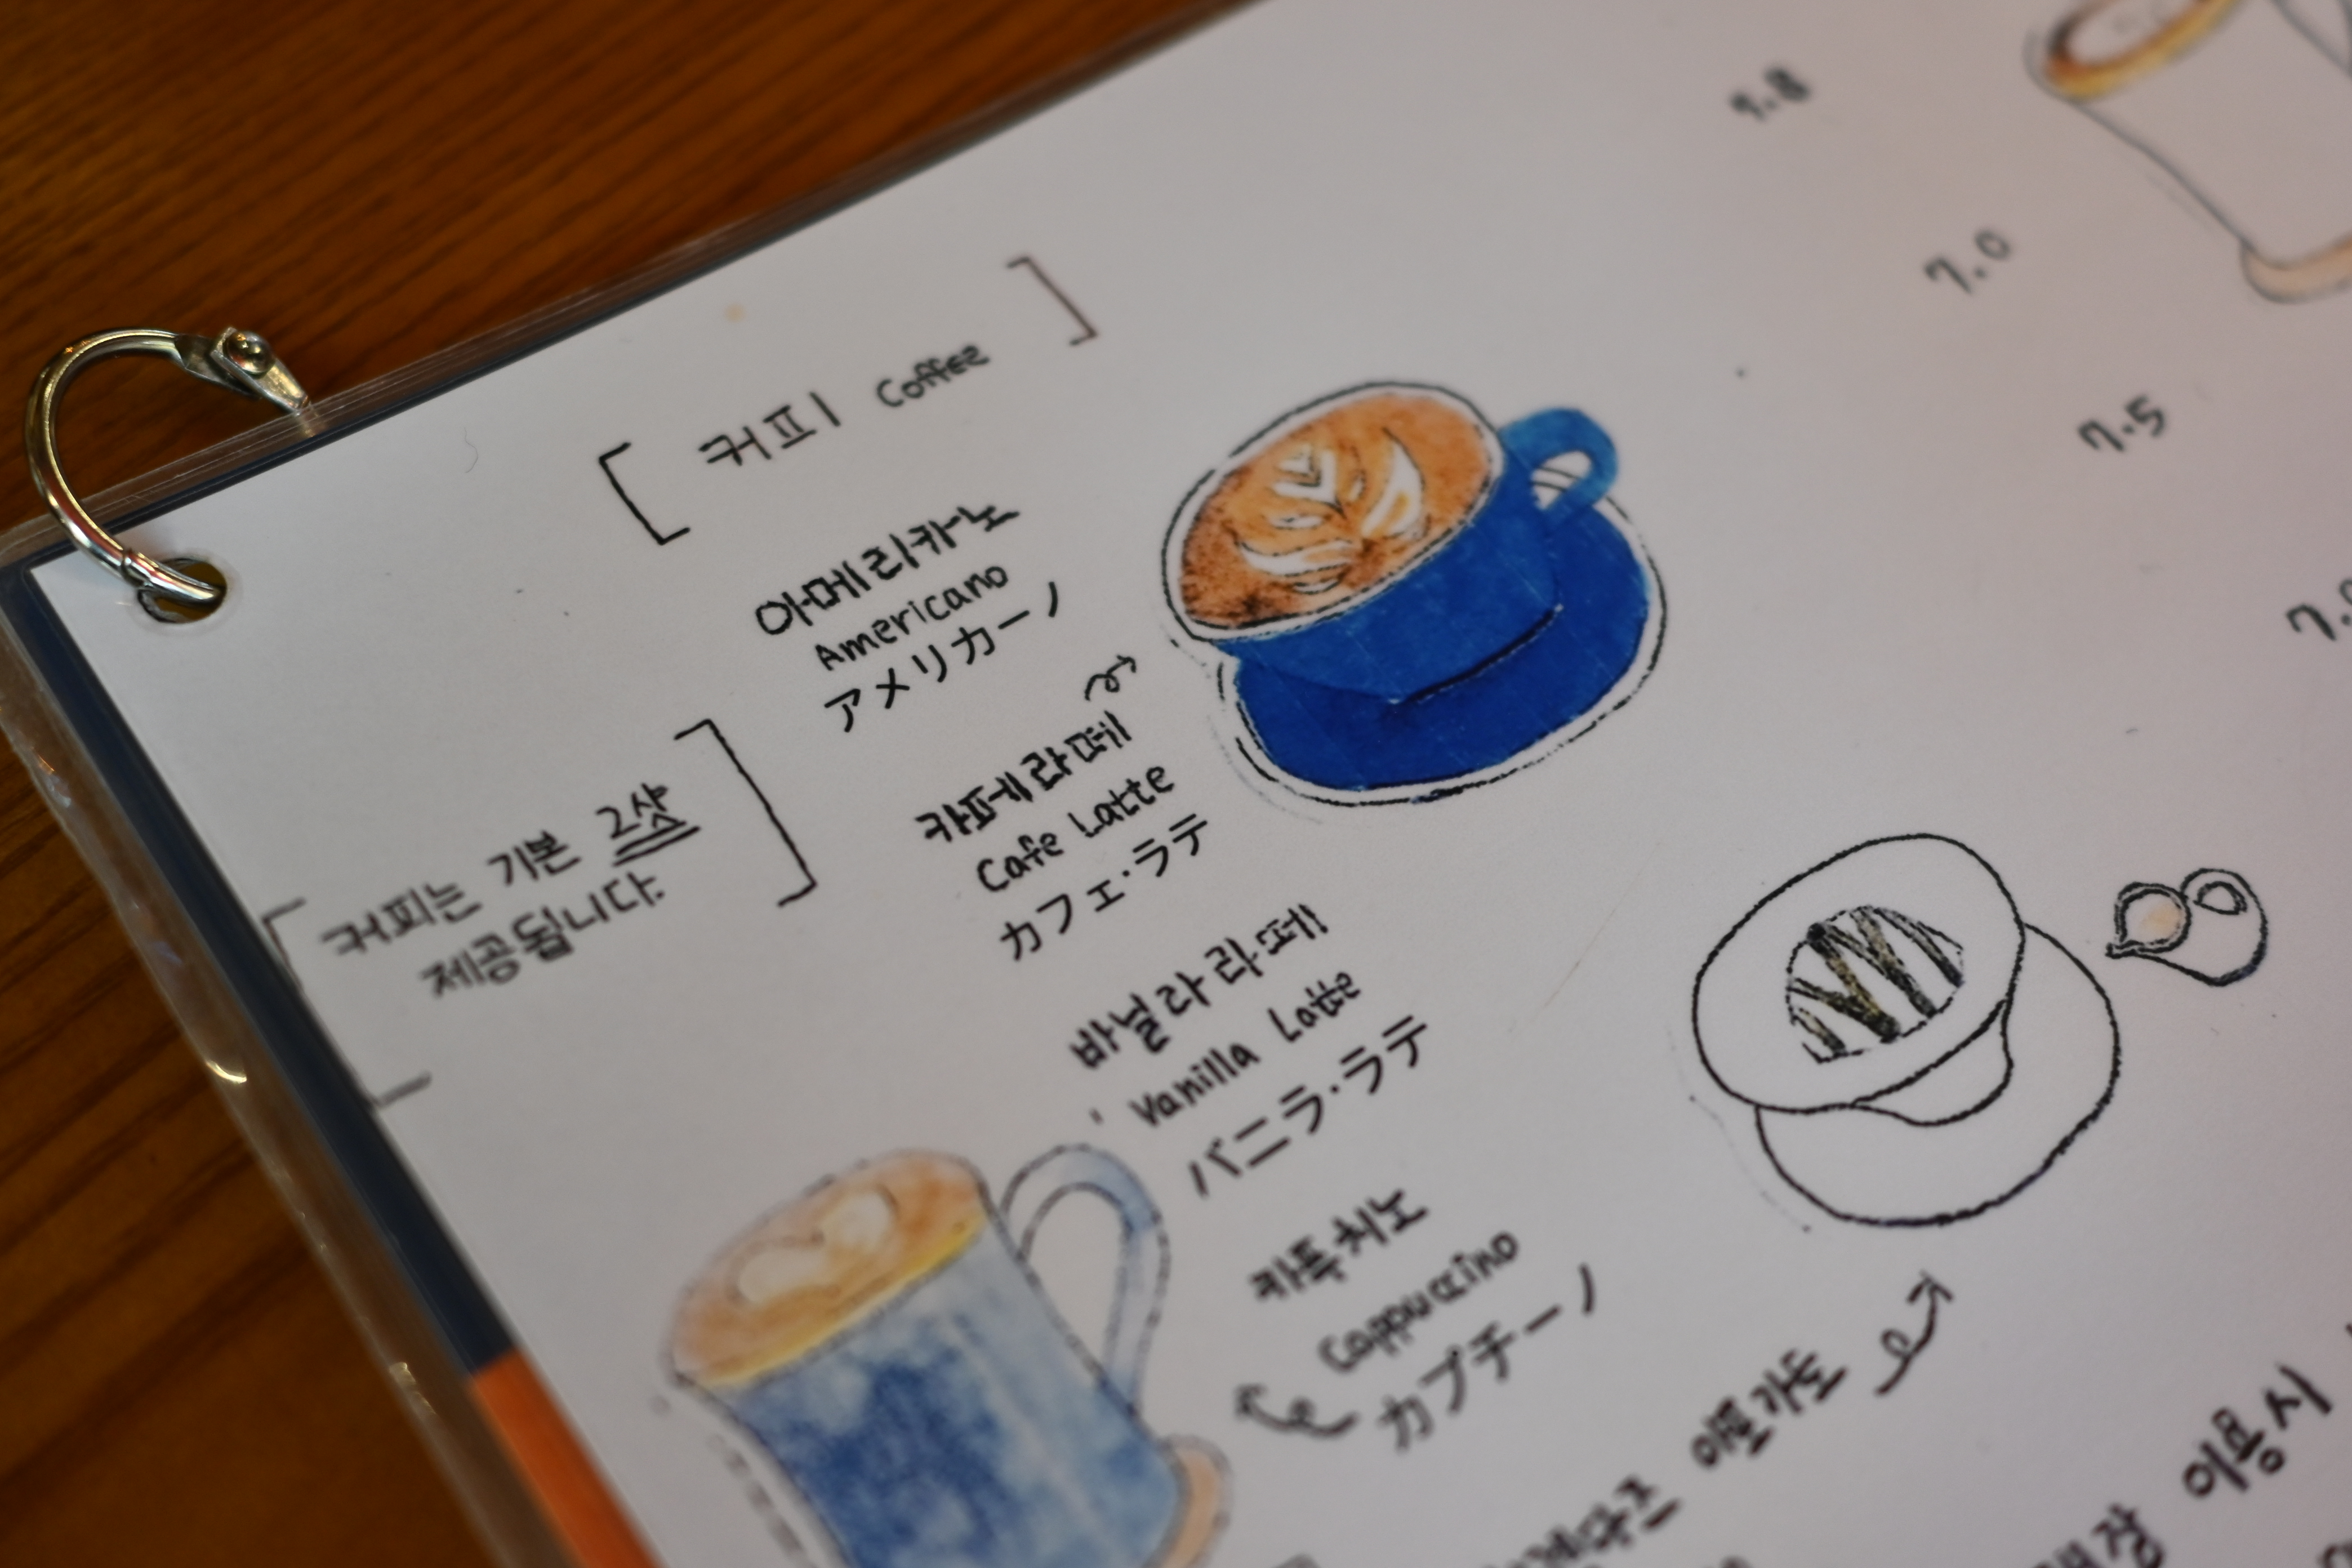 [ 커피 Coffee ]
아메리카노
Americano
アメリカーノ
[ 커피는 기본 2샷
제공됩니다. ]
카페라떼
Cafe Latte
カフェ・ラテ
바닐라라떼
Vanilla Latte
バニラ・ラテ
카푸치노
Cappuccino
カプチーノ
7.0
7.5
이용시